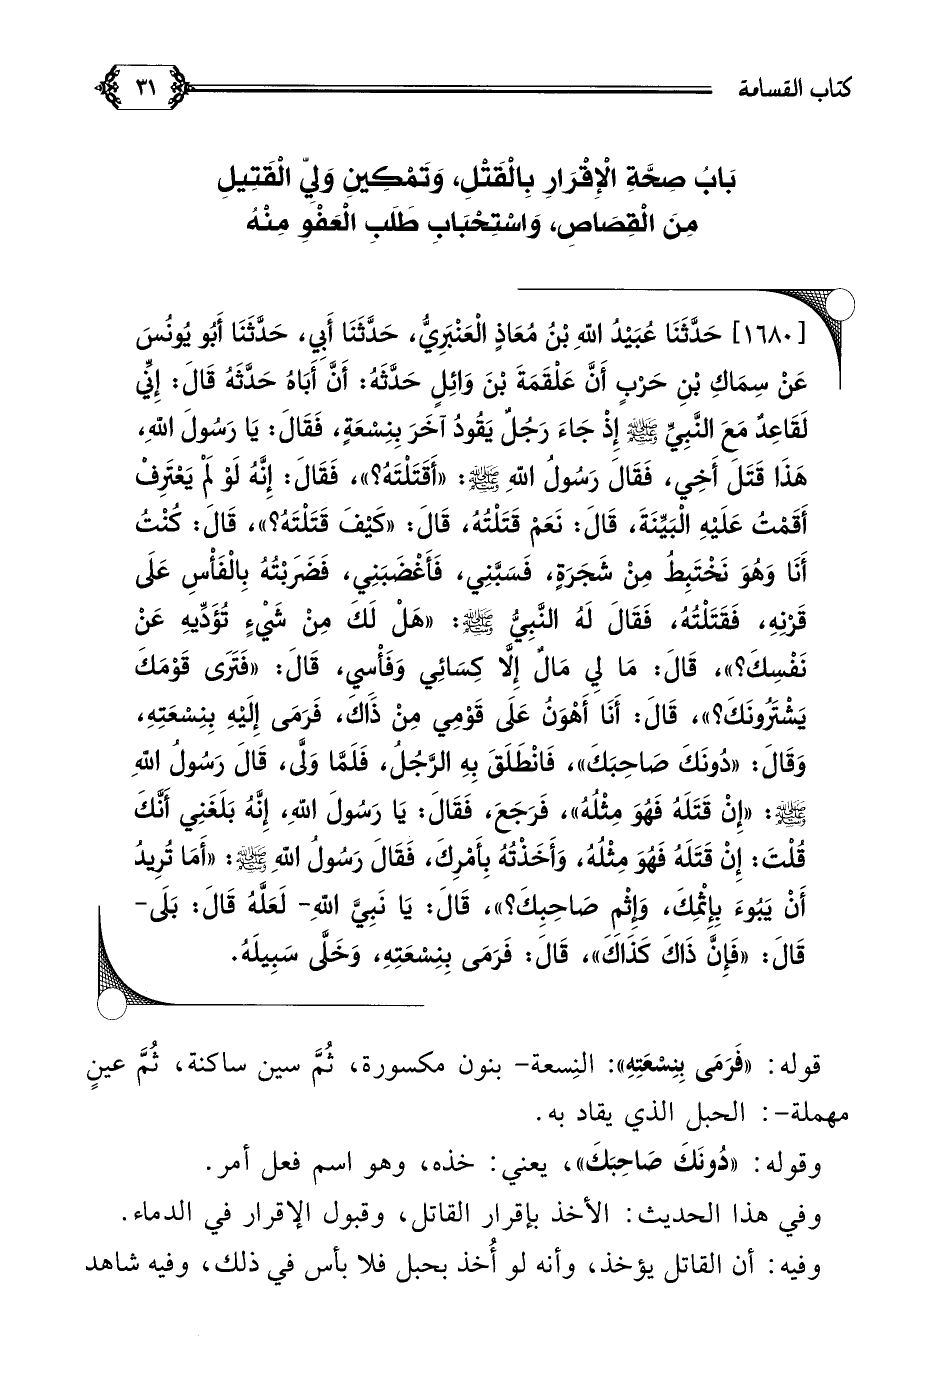 كتاب القسامة ٣١
بَابُ صِحَّةِ الْإِقْرَارِ بِالْقَتْلِ، وَتَمْكِينِ وَلِيِّ الْقَتِيلِ
مِنَ الْقِصَاصِ، وَاسْتِحْبَابِ طَلَبِ الْعَفْوِ مِنْهُ
[١٦٨٠] حَدَّثَنَا عُبَيْدُ اللهِ بْنُ مُعَاذٍ الْعَنْبَرِيُّ، حَدَّثَنَا أَبِي، حَدَّثَنَا أَبُو يُونُسَ
عَنْ سِمَاكِ بْنِ حَرْبٍ أَنَّ عَلْقَمَةَ بْنَ وَائِلٍ حَدَّثَهُ: أَنَّ أَبَاهُ حَدَّثَهُ قَالَ: إِنِّي
لَقَاعِدٌ مَعَ النَّبِيِّ ﷺ إِذْ جَاءَ رَجُلٌ يَقُودُ آخَرَ بِنِسْعَةٍ، فَقَالَ: يَا رَسُولَ اللهِ،
هَذَا قَتَلَ أَخِي، فَقَالَ رَسُولُ اللهِ ﷺ: «أَقَتَلْتَهُ؟»، فَقَالَ: إِنَّهُ لَوْ لَمْ يَعْتَرِفْ
أَقَمْتُ عَلَيْهِ الْبَيِّنَةَ، قَالَ: نَعَمْ قَتَلْتُهُ، قَالَ: «كَيْفَ قَتَلْتَهُ؟»، قَالَ: كُنْتُ
أَنَا وَهُوَ نَخْتَبِطُ مِنْ شَجَرَةٍ، فَسَبَّنِي، فَأَغْضَبَنِي، فَضَرَبْتُهُ بِالْفَأْسِ عَلَى
قَرْنِهِ، فَقَتَلْتُهُ، فَقَالَ لَهُ النَّبِيُّ ﷺ: «هَلْ لَكَ مِنْ شَيْءٍ تُؤَدِّيهِ عَنْ
نَفْسِكَ؟»، قَالَ: مَا لِي مَالٌ إِلَّا كِسَائِي وَفَأْسِي، قَالَ: «فَتَرَى قَوْمَكَ
يَشْتَرُونَكَ؟»، قَالَ: أَنَا أَهْوَنُ عَلَى قَوْمِي مِنْ ذَاكَ، فَرَمَى إِلَيْهِ بِنِسْعَتِهِ،
وَقَالَ: «دُونَكَ صَاحِبَكَ»، فَانْطَلَقَ بِهِ الرَّجُلُ، فَلَمَّا وَلَّى، قَالَ رَسُولُ اللهِ
ﷺ: «إِنْ قَتَلَهُ فَهُوَ مِثْلُهُ»، فَرَجَعَ، فَقَالَ: يَا رَسُولَ اللهِ، إِنَّهُ بَلَغَنِي أَنَّكَ
قُلْتَ: إِنْ قَتَلَهُ فَهُوَ مِثْلُهُ، وَأَخَذْتُهُ بِأَمْرِكَ، فَقَالَ رَسُولُ اللهِ ﷺ: «أَمَا تُرِيدُ
أَنْ يَبُوءَ بِإِثْمِكَ، وَإِثْمِ صَاحِبِكَ؟»، قَالَ: يَا نَبِيَّ اللهِ- لَعَلَّهُ قَالَ: بَلَى-
قَالَ: «فَإِنَّ ذَاكَ كَذَاكَ»، قَالَ: فَرَمَى بِنِسْعَتِهِ، وَخَلَّى سَبِيلَهُ.
قوله: «فَرَمَى بِنِسْعَتِهِ»: النِسعة- بنون مكسورة، ثُمَّ سين ساكنة، ثُمَّ عينٍ
مهملة-: الحبل الذي يقاد به.
وقوله: «دُونَكَ صَاحِبَكَ»، يعني: خذه، وهو اسم فعل أمر.
وفي هذا الحديث: الأخذ بإقرار القاتل، وقبول الإقرار في الدماء.
وفيه: أن القاتل يؤخذ، وأنه لو أُخذ بحبل فلا بأس في ذلك، وفيه شاهد